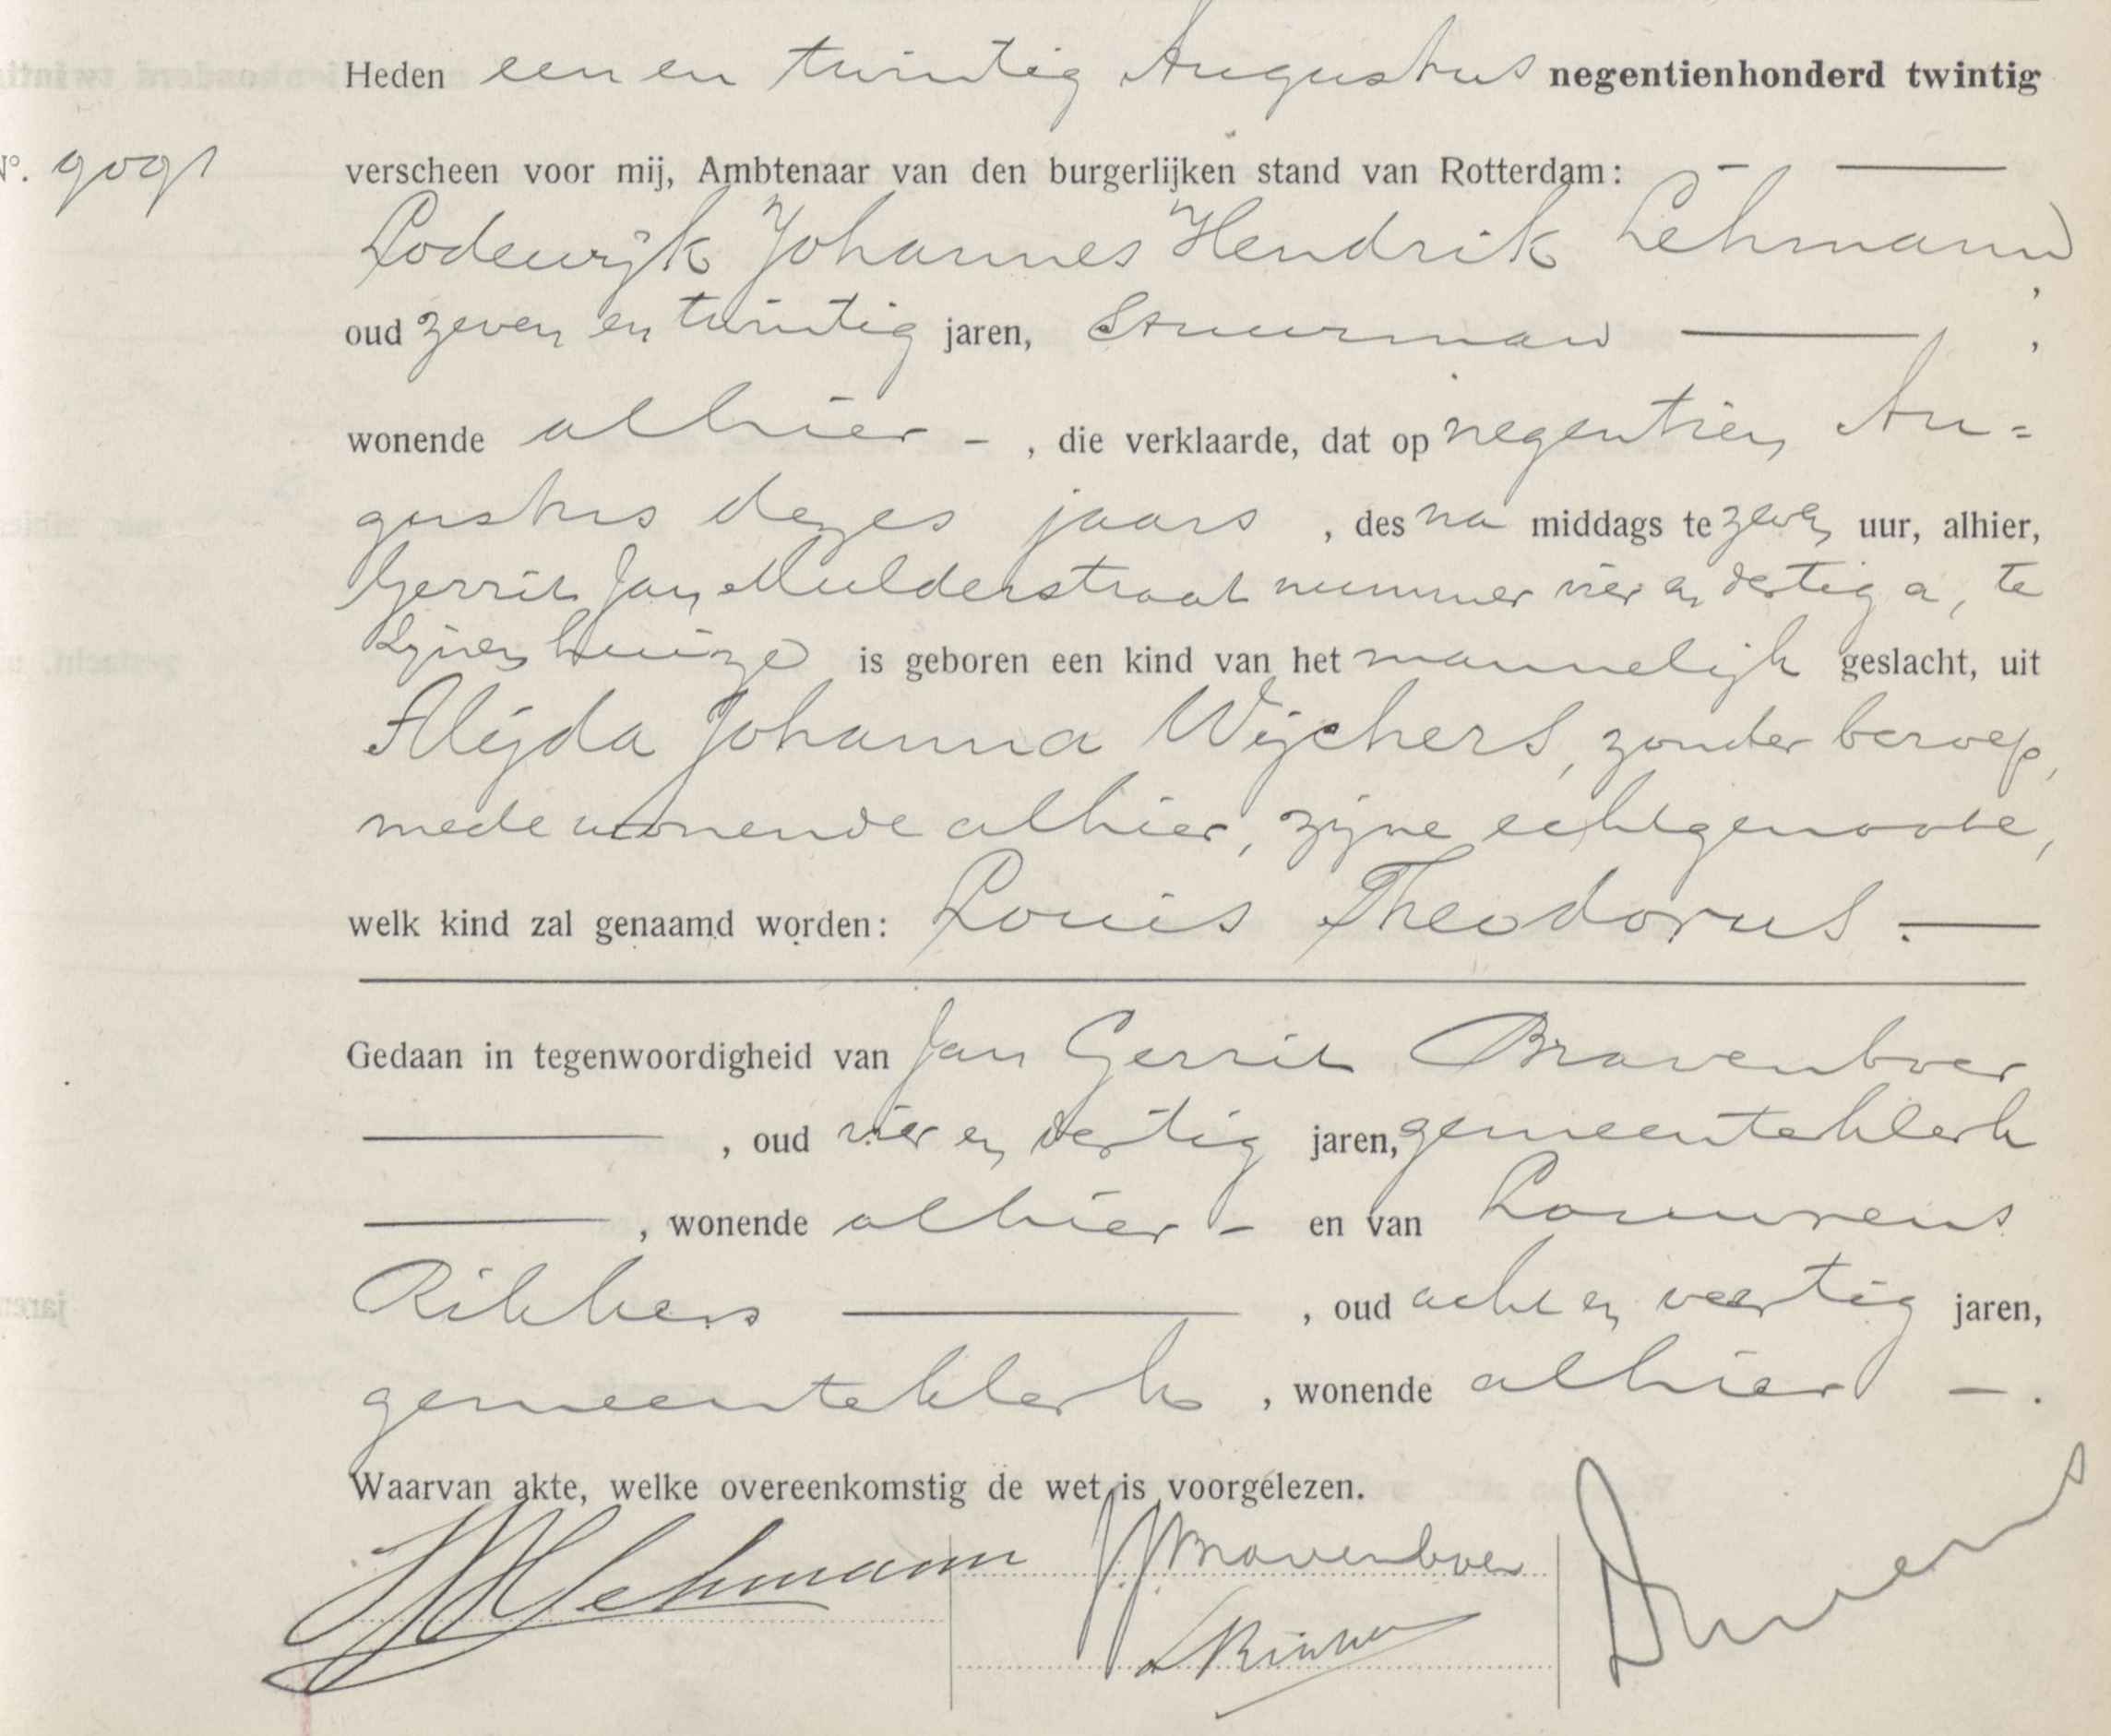 Heden een en twintig Augustus negentienhonderd twintig
N°. 9091
verscheen voor mij, Ambtenaar van den burgerlijken stand van Rotterdam:
Lodewijk Johannes Hendrik Lehmann,
oud zeven en twintig jaren, Stuurman,
wonende alhier -, die verklaarde, dat op negentien Au=
gustus dezes jaars, des na middags te zeven uur, alhier,
Gerrit Jan Mulderstraat nummer vier en dertig a, te
zijnen huize is geboren een kind van het mannelijk geslacht, uit
Alijda Johanna Wijchers, zonder beroep,
mede wonende alhier, zijne echtgenoote,
welk kind zal genaamd worden: Louis Theodorus.
Gedaan in tegenwoordigheid van Jan Gerrit Bravenboer
, oud vier en dertig jaren, gemeenteklerk
, wonende alhier - en van Lourens
Ribbers, oud acht en veertig jaren,
gemeenteklerk, wonende alhier -.
Waarvan akte, welke overeenkomstig de wet is voorgelezen.
Lehmann
J.G. Bravenboer